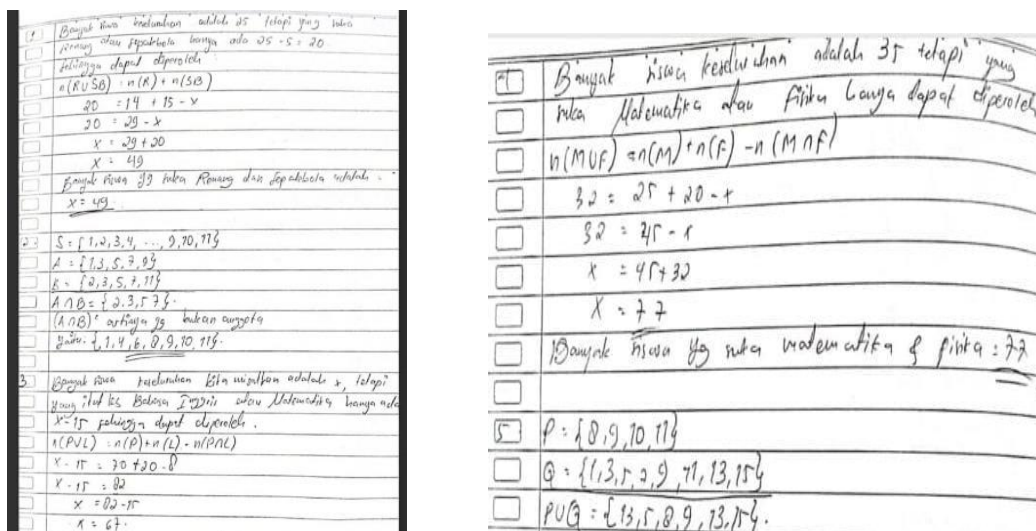 1 Banyak siswa keseluruhan adalah 25 tetapi yang suka
Renang atau sepakbola hanya ada 25 - 5 = 20
sehingga dapat diperoleh
n(RUSB) = n(R) + n(SB)
20 = 14 + 15 - x
20 = 29 - x
x = 29 + 20
x = 49
Banyak siswa yg suka Renang dan sepakbola adalah
x = 49
2. S = {1,2,3,4, ..., 9,10,11}
A = {1,3,5,7,9}
B = {2,3,5,7,11}
A∩B = {2.3,5 7}.
(A∩B)ᶜ artinya yg bukan anggota
yaitu {1,4,6,8,9,10,11}.
3 Banyak siswa keseluruhan kita misalkan adalah x, tetapi
yang ikut tes Bahasa Inggris atau Matematika hanya ada
x-15 sehingga dapat diperoleh.
n(PUL) = n(P)+n(L) - n(P∩L)
x - 15 = 70 +20 - 8
x - 15 = 82
x = 82-15
x = 67.
Banyak siswa keseluruhan adalah 35 tetapi yang
suka Matematika atau Fisika hanya dapat diperoleh
n(MUF) = n(M) + n(F) - n(M∩F)
32 = 25 + 20 - x
32 = 45 - x
x = 45+32
x = 77
Banyak siswa yg suka matematika & fisika = 77
5 P = {8,9,10,11}
Q = {1,3,5,7,9,11,13,15}
PUQ = {13,5,8,9,13,15}.